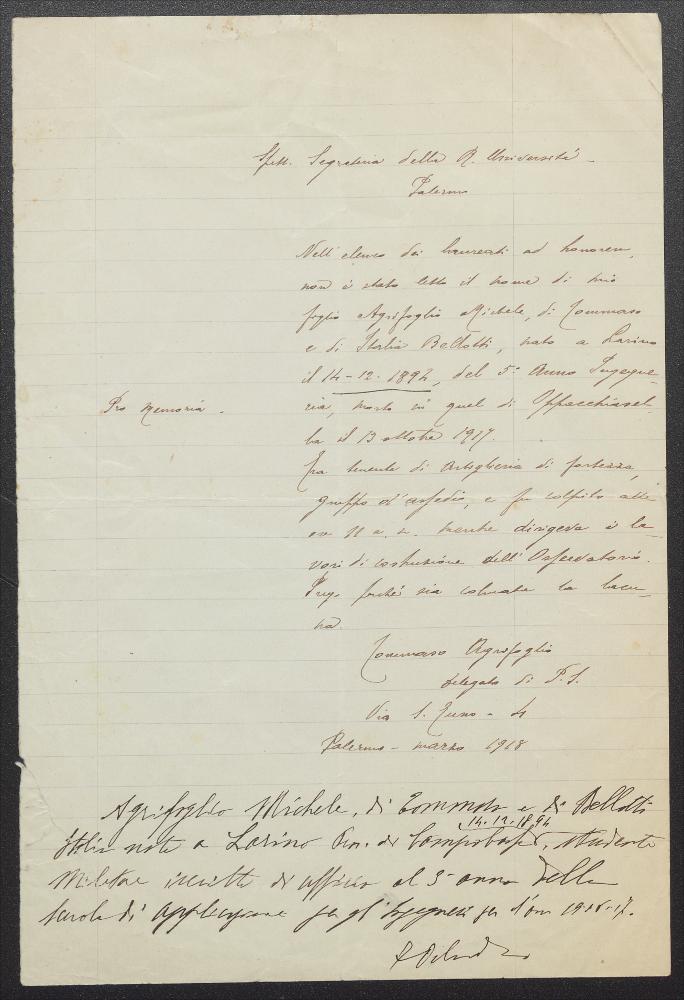 Spett. Segreteria della R. Università
Palermo
Nell'elenco dei laureati ad honorem,
non è stato letto il nome di mio
figlio Agrifoglio Michele, di Tommaso
e di Italia Bellotti, nato a Larino
il 14-12-1894, del 5° Anno Ingegne-
Pro memoria.
ria, morto in quel di Oppacchiasel-
la il 13 ottobre 1917.
Era tenente di Artiglieria di fortezza,
gruppo d'assedio, e fu colpito alle
ore 11 a. m. mentre dirigeva i la-
vori di costruzione dell'Osservatorio.
Prego perché sia colmata la lacu-
na.
Tommaso Agrifoglio
delegato di P. S.
Via S.
Palermo - marzo 1918
Agrifoglio Michele, di Tommaso e di Bellotti
14.12.1894
Italia nato a Larino Prov. di Campobasso, studente
Militare iscritto di ufficio al 5° anno della
Scuola di Applicazione per gl'Ingegneri per l'anno 1916-17.